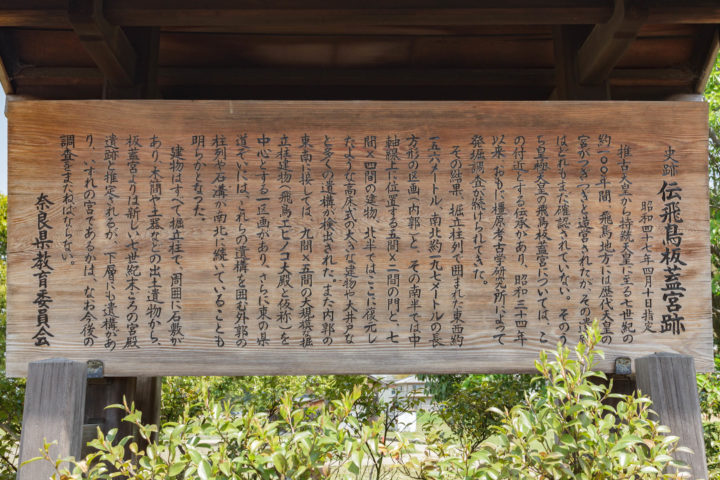 史跡 伝飛鳥板蓋宮跡
昭和四十七年四月十日指定
推古天皇から持統天皇に至る七世紀の
約一〇〇年間、飛鳥地方には歴代天皇の
宮がつぎつぎと造営されたが、その遺跡
はいずれもまた確認されていない。そのう
ち皇極天皇の飛鳥板蓋宮については、こ
の付近とする伝承があり、昭和三十四年
以来、おもに橿原考古学研究所によって
発掘調査が続けられてきた。
その結果、掘立柱列で囲まれた東西約
一五六メートル、南北約一九七メートルの長
方形の区画(内郭)と、その南半では中
軸線上に位置する五間×二間の門と、七
間×四間の建物、北半ではここに復元し
たような高床式の大きな建物や大井戸な
ど多くの遺構が検出された。また内郭の
東南に接しては、九間×五間の大規模掘
立柱建物(飛鳥エビノコ大殿・仮称)を
中心とする一区画があり、さらに東の県
道ぞいには、これらの遺構を囲む外郭の
柱列や石溝が南北に続いていることも
明らかとなった。
建物はすべて掘立柱で、周囲に石敷が
あり、木簡や土器などの出土遺物から、
板蓋宮よりは新しい七世紀末ころの宮殿
遺跡と推定されるが、下層にも遺構があ
り、いずれの宮であるかは、なお今後の
調査をまたねばならない。
奈良県教育委員会